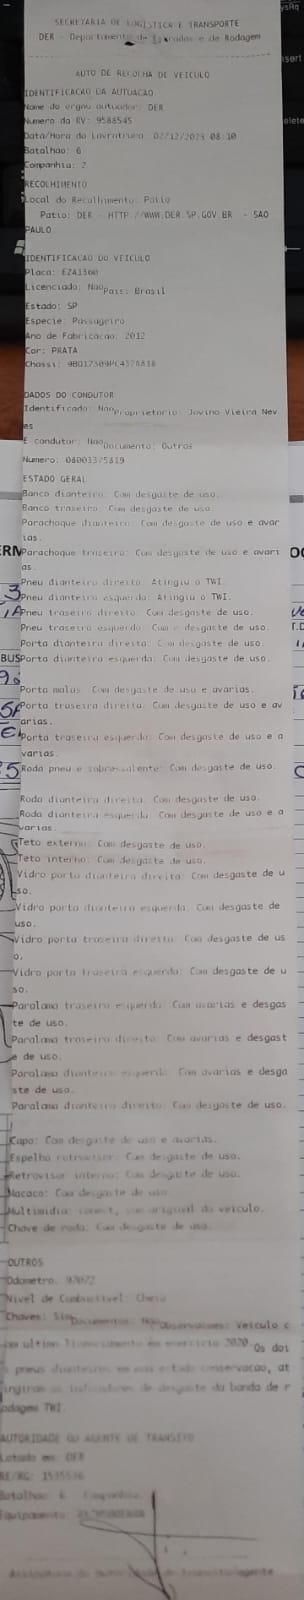 SECRETARIA DE LOGISTICA E TRANSPORTE
DER - Departamento de Estradas e de Rodagem
AUTO DE RECOLHA DE VEICULO
IDENTIFICACAO DA AUTUACAO
Nome do orgao autuador: DER
Numero da RV: 9588545
Data/Hora da Lavratura: 02/12/2023 08:10
Batalhao: 6
Companhia: 2
RECOLHIMENTO
Local do Recolhimento: Patio
Patio: DER - HTTP://WWW.DER.SP.GOV.BR - SAO
PAULO
IDENTIFICACAO DO VEICULO
Placa: EZA1360
Licenciado: Nao Pais: Brasil
Estado: SP
Especie: Passageiro
Ano de Fabricacao: 2012
Cor: PRATA
Chassi:
DADOS DO CONDUTOR
Identificado: Nao Proprietario: Jovino Vieira Nev
es
E condutor: Nao Documento: Outros
Numero: 08003375819
ESTADO GERAL
Banco dianteiro: Com desgaste de uso.
Banco traseiro: Com desgaste de uso.
Parachoque dianteiro: Com desgaste de uso e avar
ias.
Parachoque traseiro: Com desgaste de uso e avari
as.
Pneu dianteiro direito: Atingiu o TWI.
Pneu dianteiro esquerdo: Atingiu o TWI.
Pneu traseiro direito: Com desgaste de uso.
Pneu traseiro esquerdo: Com desgaste de uso.
Porta dianteira direita: Com desgaste de uso.
Porta dianteira esquerda: Com desgaste de uso.
Porta malas: Com desgaste de uso e avarias.
Porta traseira direita: Com desgaste de uso e av
arias.
Porta traseira esquerda: Com desgaste de uso e a
varias.
Roda pneu e sobressalente: Com desgaste de uso.
Roda dianteira direita: Com desgaste de uso.
Roda dianteira esquerda: Com desgaste de uso e a
varias.
Teto externo: Com desgaste de uso.
Teto interno: Com desgaste de uso.
Vidro porta dianteira direita: Com desgaste de u
so.
Vidro porta dianteira esquerda: Com desgaste de
uso.
Vidro porta traseira direita: Com desgaste de us
o.
Vidro porta traseira esquerda: Com desgaste de u
so.
Paralama traseiro esquerdo: Com avarias e desgas
te de uso.
Paralama traseiro direito: Com avarias e desgast
e de uso.
Paralama dianteiro esquerdo: Com avarias e desga
ste de uso.
Paralama dianteiro direito: Com desgaste de uso.
Capo: Com desgaste de uso e avarias.
Espelho retrovisor: Com desgaste de uso.
Retrovisor interno: Com desgaste de uso.
Macaco: Com desgaste de uso
Multimidia: som original do veiculo.
Chave de roda: Com desgaste de uso.
OUTROS
Odometro: 97072
Nivel de Combustivel: Cheio
Chaves: Sim Documentos: Nao Observacoes: Veiculo c
om ultimo licenciamento em exercicio 2020. Os doi
s pneus dianteiros em mau estado conservacao, at
ingiram os indicadores de desgaste da banda de r
odagem TWI.
AUTORIDADE OU AGENTE DE TRANSITO
Lotado em: DER
RE/RG: 1535536
Batalhao: 6 Companhia:
Equipamento:
Assinatura da Autoridade de transito/agente